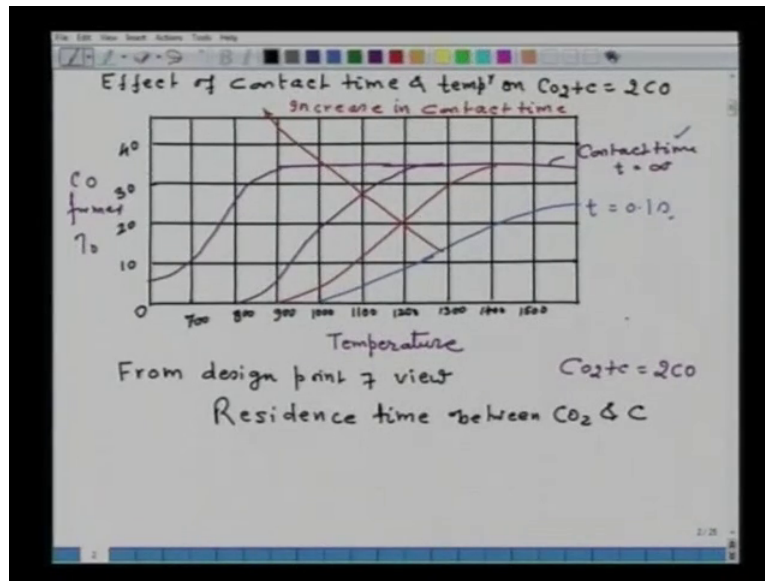 File Edit View Insert Actions Tools Help
Effect of contact time & temp^r on CO2+C = 2CO
Increase in contact time
40
30
20
10
0
CO
formed
%
Contact time
t = ∞
t = 0.1s
700 800 900 1000 1100 1200 1300 1400 1500
Temperature
From design point of view
CO2+C = 2CO
Residence time between CO2 & C
2/25
2